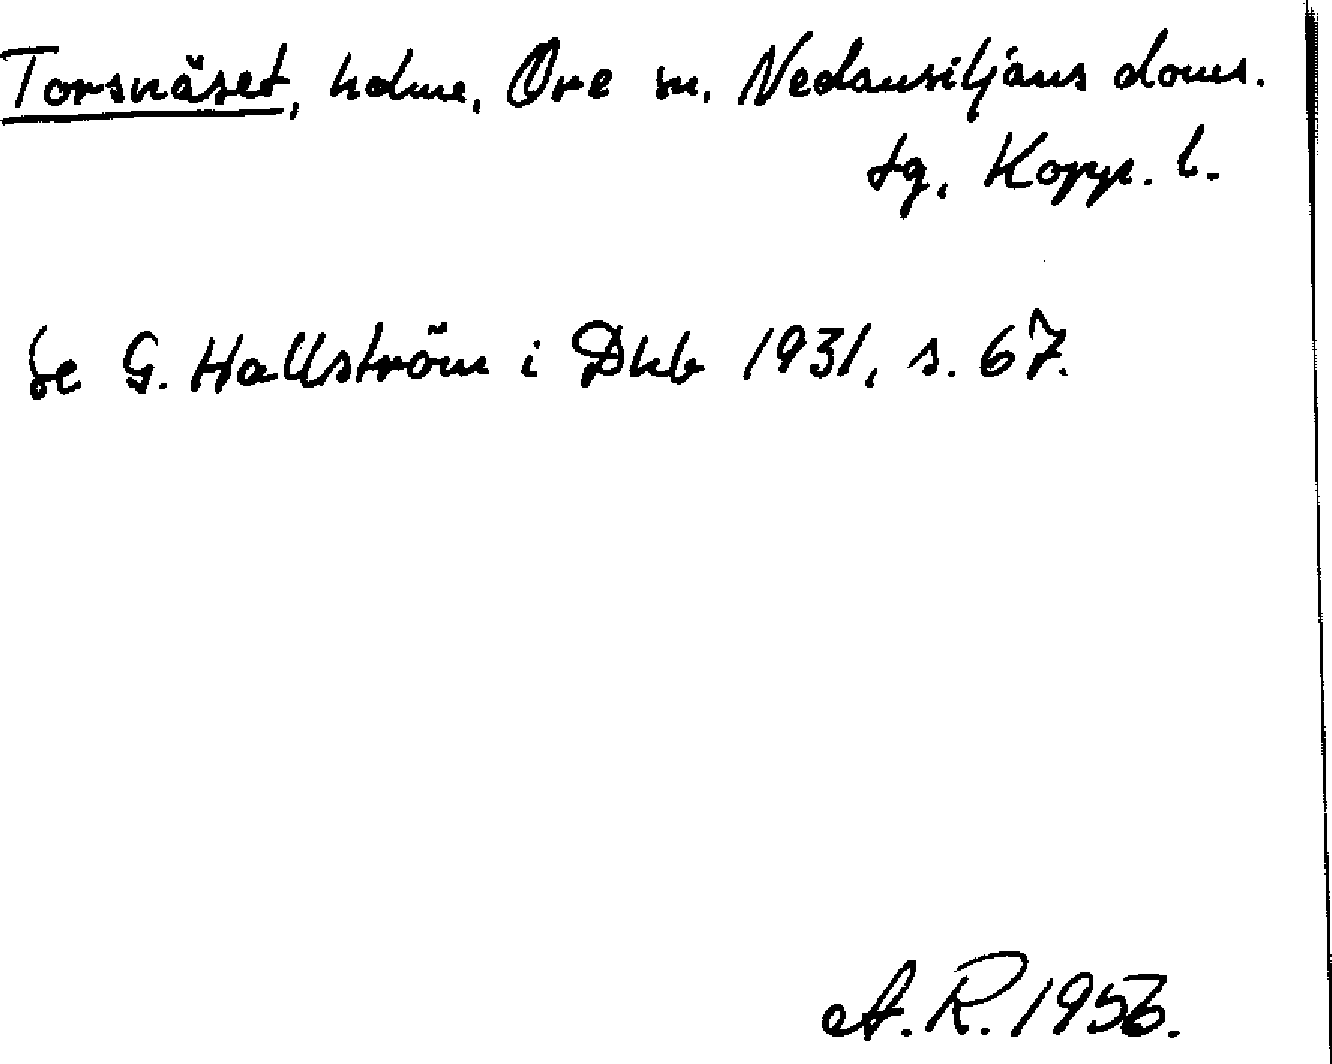 Torsnäset, holme, Ore sn, Nedansiljans doms.
tg, Kopp. l.
Se G. Hallström i Dhb 1931, s. 67.
A.R. 1956.